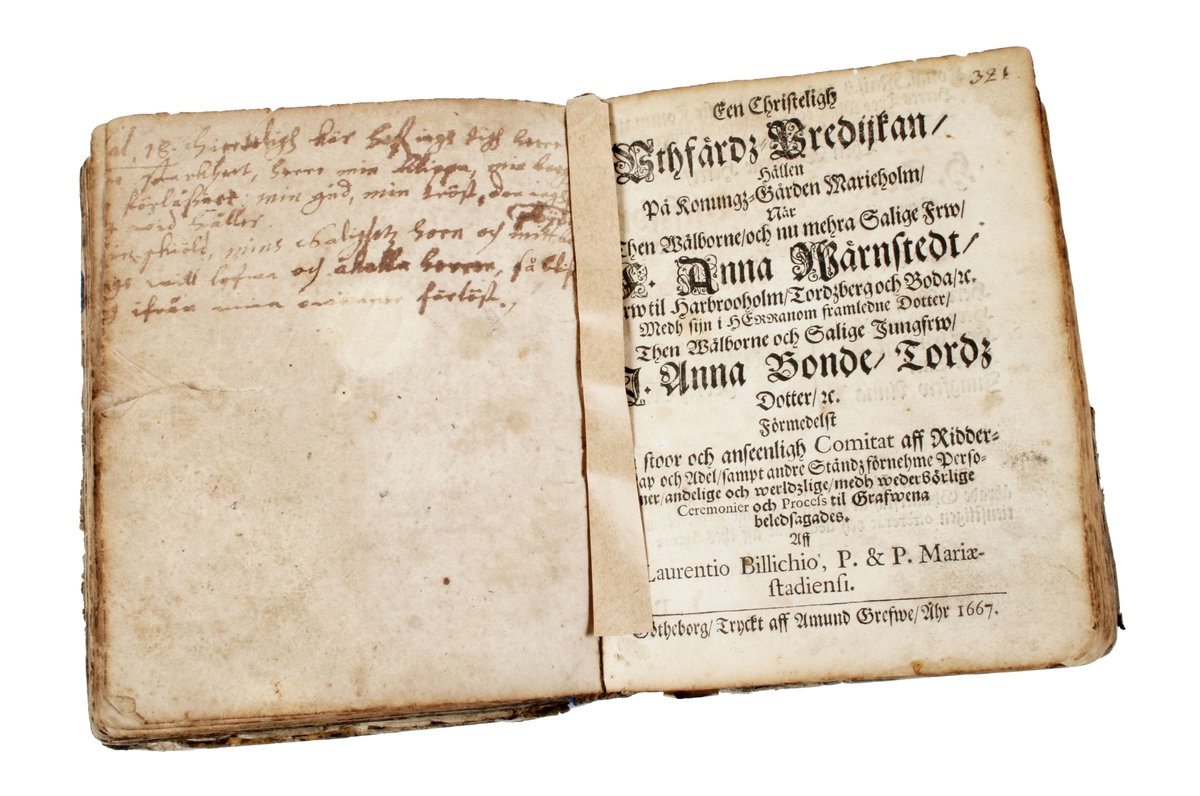 hierteligh kär
starkheet, herre min klippa, min
förlossare, min gud, min tröst,
håller
skiöld, mins Saligheetz horn och mitt
will lofwa och åkalla herren, så
ifrån mina förlöst.
321
Een Christeligh
Vthfärdz-Predijkan/
Hållen
På Konungz-Gården Marieholm/
När
Then Wälborne/och nu mehra Salige Frw/
F. Anna Wärnstedt/
rw til Harbrooholm/Tordzberg och Boda/ꝛc.
Medh sijn i HERRanom framledne Dotter/
Then Wälborne och Salige Jungfrw/
J. Anna Bonde/ Tordz
Dotter/ ꝛc.
Förmedelst
stoor och anseenligh Comitat aff Ridder-
ap och Adel/sampt andre Ständz förnehme Perso-
ner/andelige och werldzlige/medh wederbörlige
Ceremonier och Process til Grafwena
beledsagades.
Aff
Laurentio Billichio, P. & P. Mariæ-
stadiensi.
Götheborg/Tryckt aff Amund Grefwe/Åhr 1667.